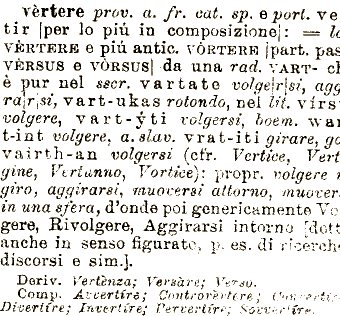 vèrtere prov. a. fr. cat. sp. e port. ve
tir [per lo più in composizione]: = la
VÈRTERE e più antic. VÒRTERE [part. pas
VÈRSUS e VÒRSUS] da una rad. VART- ch
è pur nel sscr. vartate volge[r]si, agg
ra[r]si, vart-ukas rotondo, nel lit. virs
volgere, vart-ýti volgersi, boem. war
t-int volgere, a. slav. vrat-iti girare, go
vairth-an volgersi (cfr. Vertice, Vert
gine, Vertunno, Vortice): propr. volgere
giro, aggirarsi, muoversi attorno, muover
in una sfera, d'onde poi genericamente Vo
gere, Rivolgere, Aggirarsi intorno [dett
anche in senso figurato, p. es. di ricerche
discorsi e sim.].
Deriv. Vertènza; Versàre; Verso.
Comp. Avvertíre; Controvèrtere; Convertír
Divertíre; Invertíre; Pervertíre; Sovvertíre.